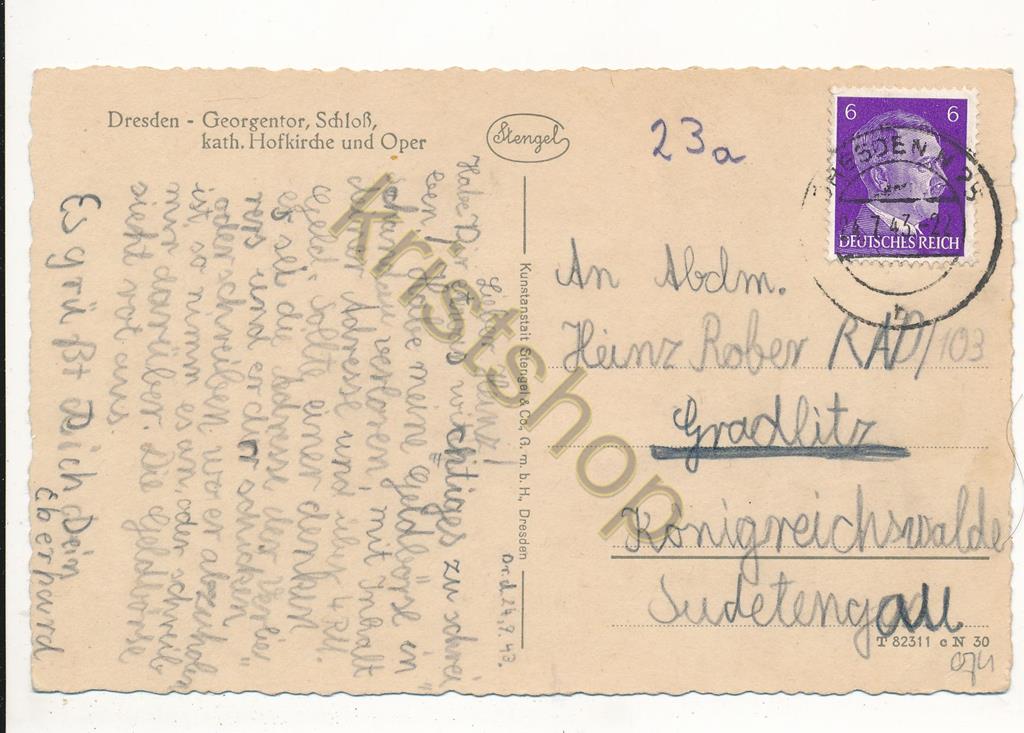 Dresden - Georgentor, Schloß,
kath. Hofkirche und Oper
Stengel
23a
6 6
DEUTSCHES REICH
DRESDEN N 25
24.7.43
An Abdm.
Heinz Rober RAD/103
Gradlitz
Königreichswalde
Sudetengau
T 82311 c N 30
0741
Kunstanstalt Stengel & Co., G. m. b. H., Dresden
Drd. 24.7.43.
Lieber Heinz!
Habe Dir etwas wichtiges zu schrei
ben. Habe meine "Geldbörse" in
der Adresse und über 4 RM.
verloren, mit Inhalt
Geld" sollte einer denken
es sei die
und er schicken
oder schreiben wo er abzuholen
ist, so nimm es an, oder schreib
mir darüber. Die Geldbörse
sieht rot aus.
Es grüßt Dich Dein
Eberhard
kristshop